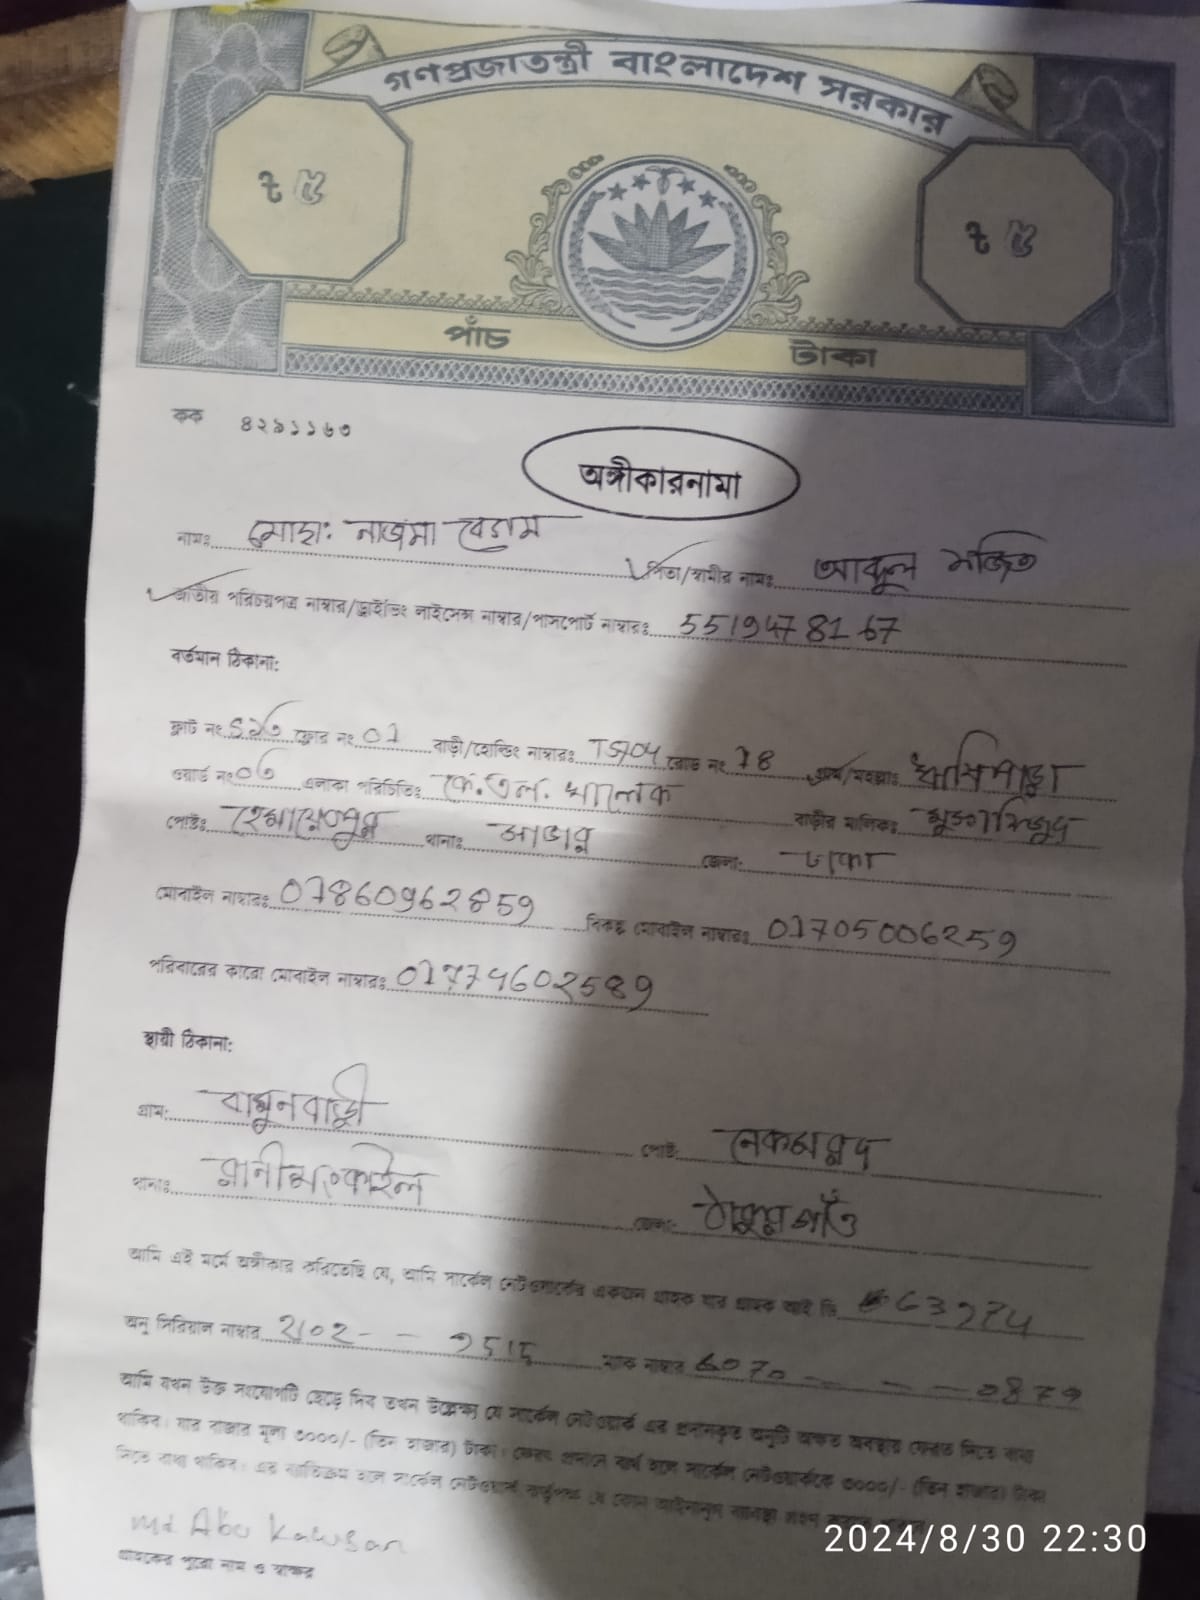 গণপ্রজাতন্ত্রী বাংলাদেশ সরকার
৳ ৫
৳ ৫
পাঁচ টাকা
কক ৪২৯১১৬৩
অঙ্গীকারনামা
নামঃ মোছা: নাজমা বেগম
পিতা/স্বামীর নামঃ আব্দুল মজিত
জাতীয় পরিচয়পত্র নাম্বার/ড্রাইভিং লাইসেন্স নাম্বার/পাসপোর্ট নাম্বারঃ 5519478167
বর্তমান ঠিকানা:
ফ্লাট নং ফ্লোর নং 01 বাড়ী/হোল্ডিং নাম্বারঃ রোড নং 18 গ্রাম/মহল্লাঃ ঋষিপাড়া
ওয়ার্ড নং 06 এলাকা পরিচিতিঃ কে.এল. বাড়ীর মালিকঃ
পোষ্টঃ হেমায়েতপুর থানাঃ সাভার জেলা: ঢাকা
মোবাইল নাম্বারঃ 01860962859 বিকল্প মোবাইল নাম্বারঃ 01705006259
পরিবারের কারো মোবাইল নাম্বারঃ 01774602589
স্থায়ী ঠিকানা:
গ্রাম: বামুনবাড়ী পোষ্ট: নেকমরদ
থানাঃ রানীশংকাইল জেলা: ঠাকুরগাঁও
আমি এই মর্মে অঙ্গীকার করিতেছি যে, আমি সার্কেল নেটওয়ার্কের একজন গ্রাহক যার গ্রাহক আই ডি
অনু সিরিয়াল নাম্বার 2102 - - ম্যাক নাম্বার - - - 0879
আমি যখন উক্ত সংযোগটি ছেড়ে দিব তখন উল্লেখ্য যে সার্কেল নেটওয়ার্ক এর প্রদানকৃত অনুটি অক্ষত অবস্থায় ফেরত দিতে বাধ্য
থাকিব। যার বাজার মূল্য ৩০০০/- (তিন হাজার) টাকা। ফেরৎ প্রদানে ব্যর্থ হলে সার্কেল নেটওয়ার্ককে ৩০০০/- (তিন হাজার) টাকা
দিতে বাধ্য থাকিব। এর ব্যতিক্রম হলে সার্কেল নেটওয়ার্ক কর্তৃপক্ষ যে কোন আইনানুগ ব্যবস্থা গ্রহণ
Md. Abu Kawsar
গ্রাহকের পুরো নাম ও স্বাক্ষর
2024/8/30 22:30